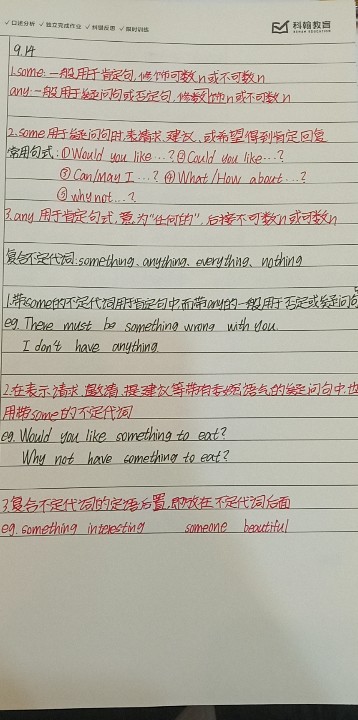 ✓口述分析 ✓独立完成作业 ✓纠错反思 ✓限时训练
科翰教育
9.14
1.some:一般用于肯定句,修饰可数n或不可数n
any:一般用于疑问句或否定句,修饰可数n或不可数n
2.some用于疑问句时,表请求,建议,或希望得到肯定回复
常用句式:①Would you like...?②Could you like...?
③Can/May I...?④What/How about...?
⑤why not...?
3.any用于肯定句式,意为"任何的",后接不可数n或可数n
复合不定代词:something、anything、everything、nothing
1.带some的不定代词用于肯定句中,而带any的一般用于否定或疑问句
eg. There must be something wrong with you.
I don't have anything.
2.在表示请求,邀请,提建议等带有委婉语气的疑问句中,也
用带some的不定代词
eg. Would you like something to eat?
Why not have something to eat?
3.复合不定代词的定语后置,即放在不定代词后面
eg. something interesting someone beautiful